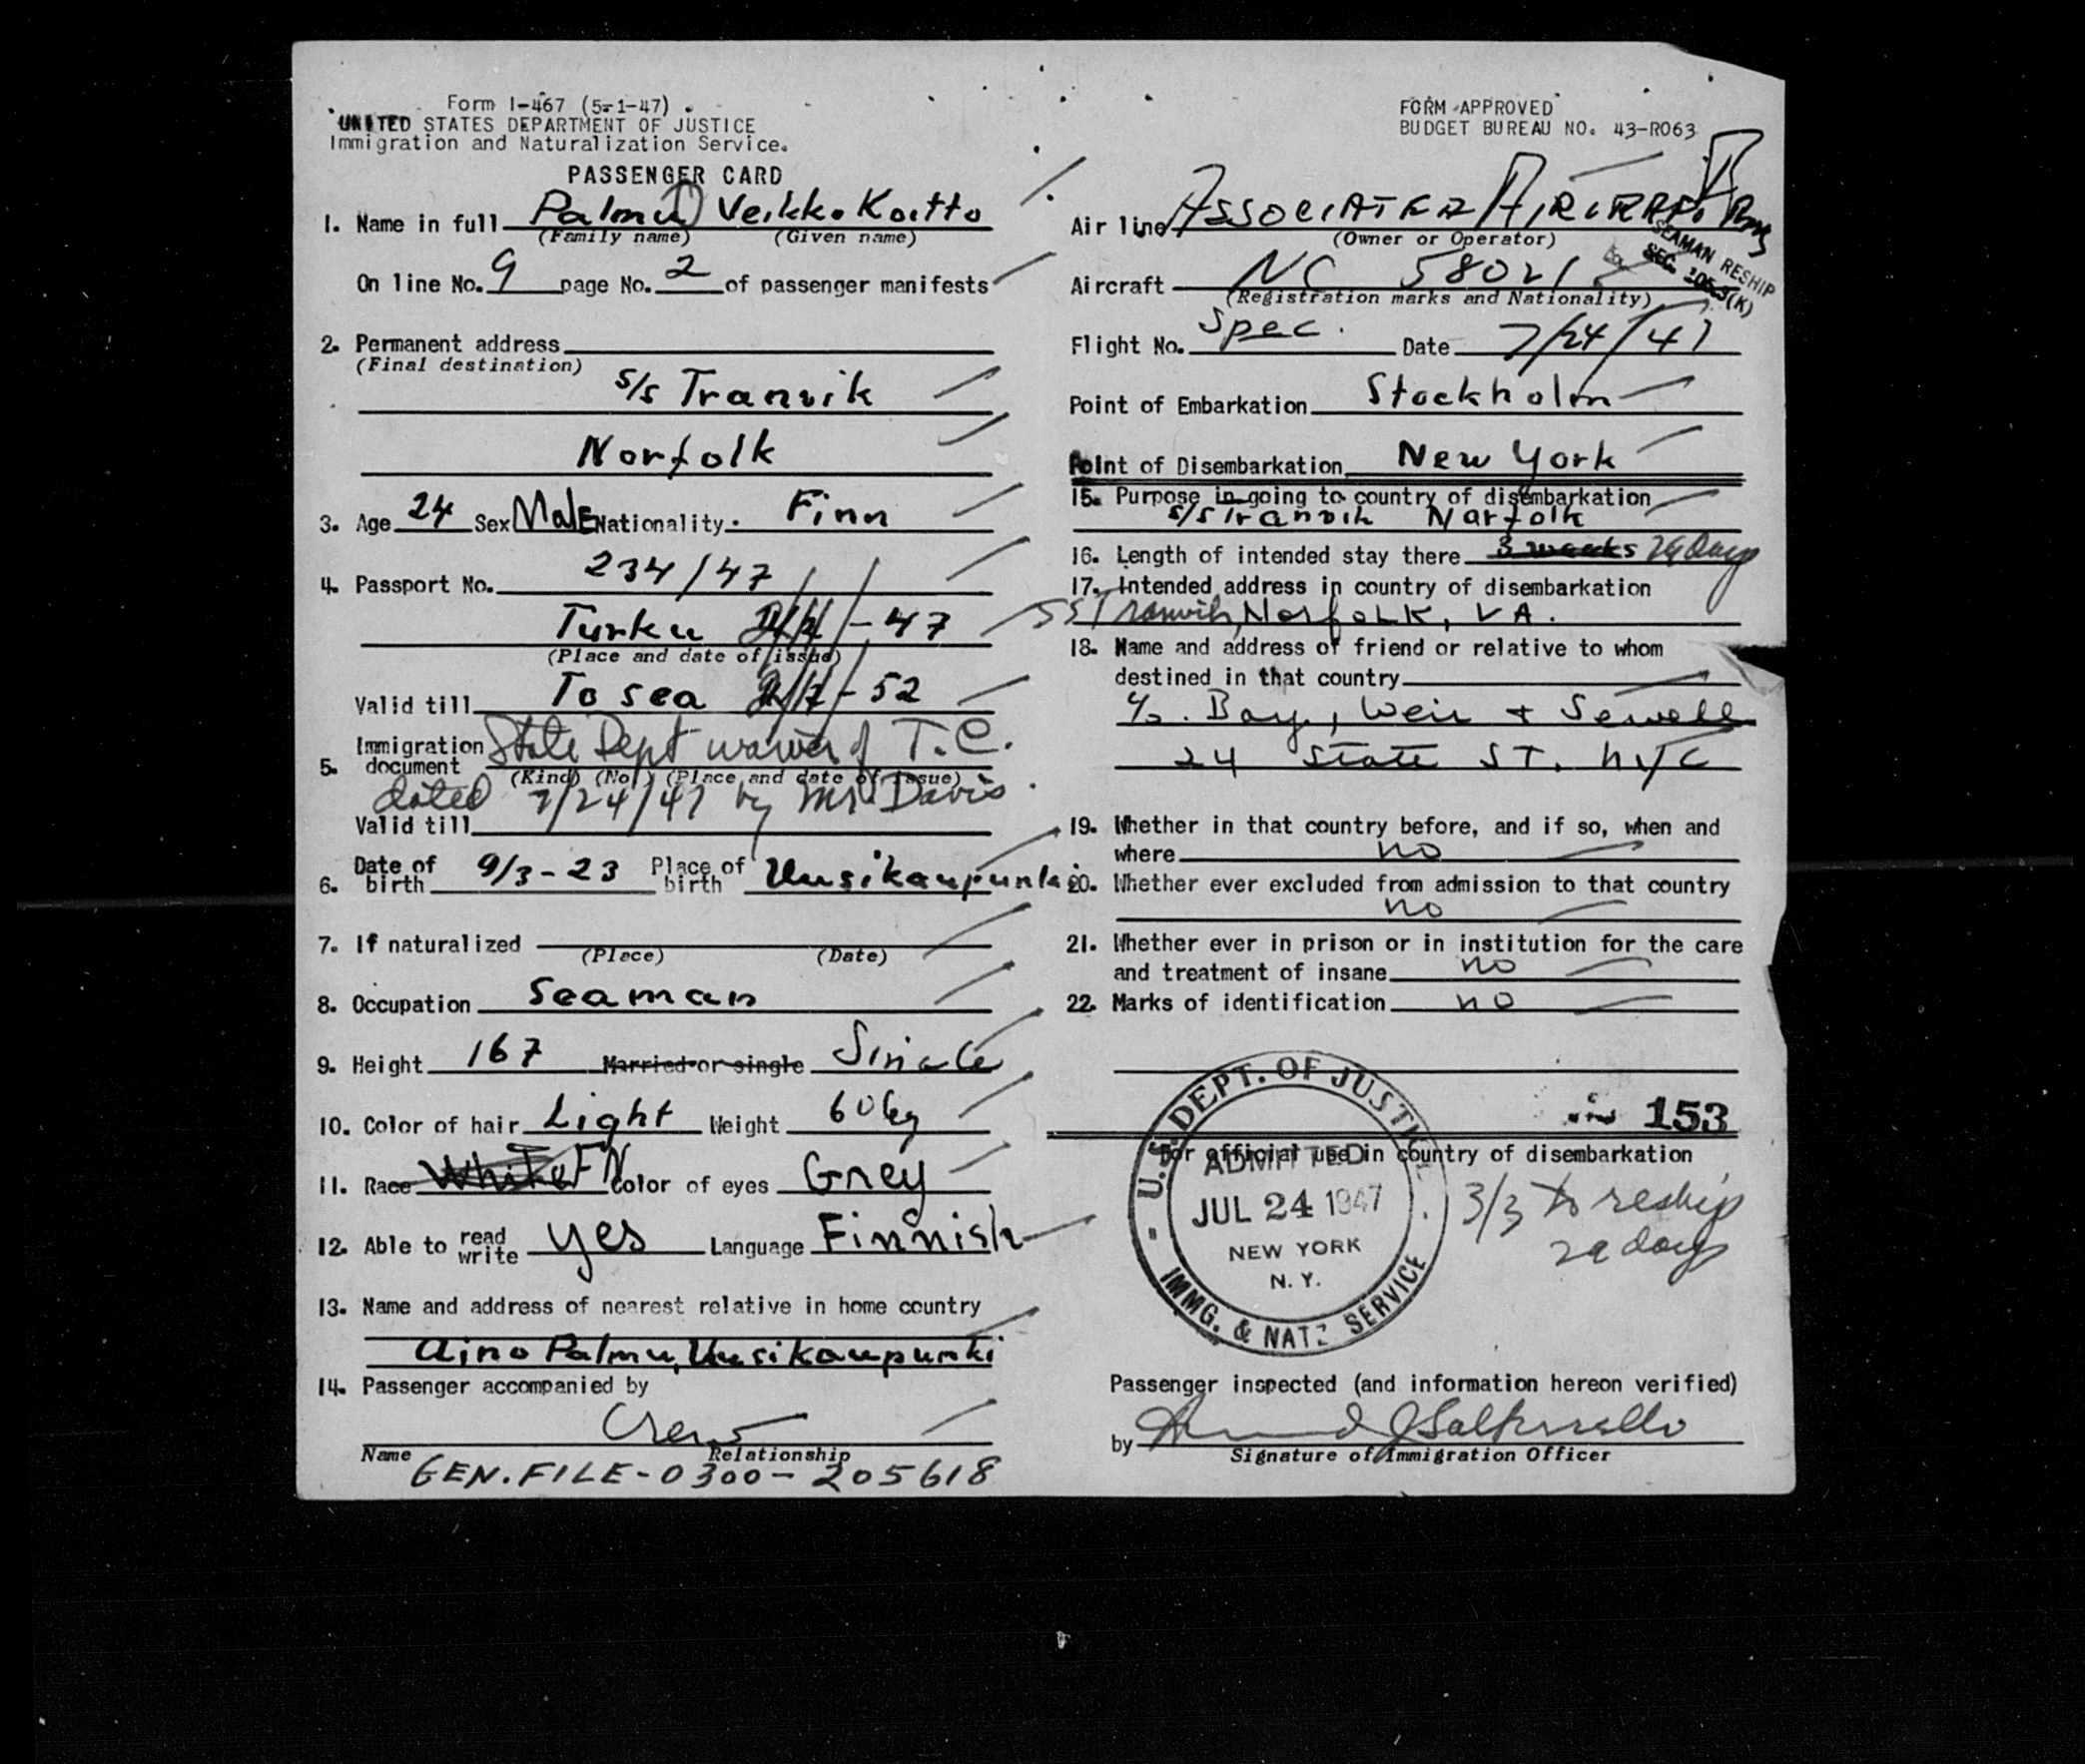 Form I-467 (5-1-47)
UNITED STATES DEPARTMENT OF JUSTICE
Immigration and Naturalization Service.
PASSENGER CARD
1. Name in full Palmu Veikko Koitto
(Family name) (Given name)
On line No. 9 page No. 2 of passenger manifests
2. Permanent address
(Final destination)
s/s Tranvik
Norfolk
3. Age 24 Sex Male Nationality. Finn
4. Passport No. 234/47
Turku -47
(Place and date of issue)
Valid till To sea -52
5. Immigration document State Dept waiver of T.C.
(Kind) (No.) (Place and date of issue)
dated 7/24/47 by Mr. Davis.
Valid till
6. Date of birth 9/3-23 Place of birth Uusikaupunki
7. If naturalized
(Place) (Date)
8. Occupation Seaman
9. Height 167 Married or single Single
10. Color of hair Light Weight 60kg
11. Race White Color of eyes Grey
12. Able to read write yes Language Finnish
13. Name and address of nearest relative in home country
Aino Palmu, Uusikaupunki
14. Passenger accompanied by
Crew
Name Relationship
GEN.FILE-0300-205618
FORM APPROVED
BUDGET BUREAU NO. 43-R063
Air line Associated Aircraft
(Owner or Operator)
SEAMAN RESHIP
SEC. 105.3(K)
Aircraft NC 58021
(Registration marks and Nationality)
Flight No. Spec. Date 7/24/47
Point of Embarkation Stockholm
Point of Disembarkation New York
15. Purpose in going to country of disembarkation
s/s Tranvik Norfolk
16. Length of intended stay there 3 weeks 29 Days
17. Intended address in country of disembarkation
SS Tranvik, Norfolk, VA.
18. Name and address of friend or relative to whom
destined in that country
c/o. Boyd, Weir + Sewell
24 State ST. NYC
19. Whether in that country before, and if so, when and
where no
20. Whether ever excluded from admission to that country
no
21. Whether ever in prison or in institution for the care
and treatment of insane no
22. Marks of identification no
153
For official use in country of disembarkation
U.S. DEPT. OF JUSTICE
ADMITTED
JUL 24 1947
NEW YORK
N. Y.
IMMG. & NATZ SERVICE
3/3 to reship
29 days
Passenger inspected (and information hereon verified)
by
Signature of Immigration Officer